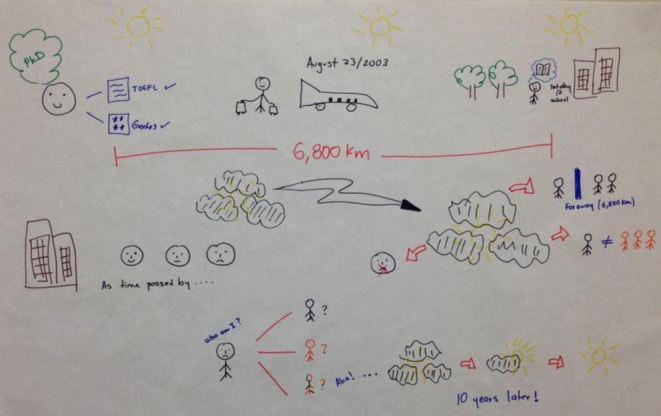 Ph.D
TOEFL ✓
Grades ✓
August 23/2003
school
6,800 km
Faraway (6,800km)
≠
As time passed by ....
Who am I?
?
?
?
Aha! ...
10 years later!